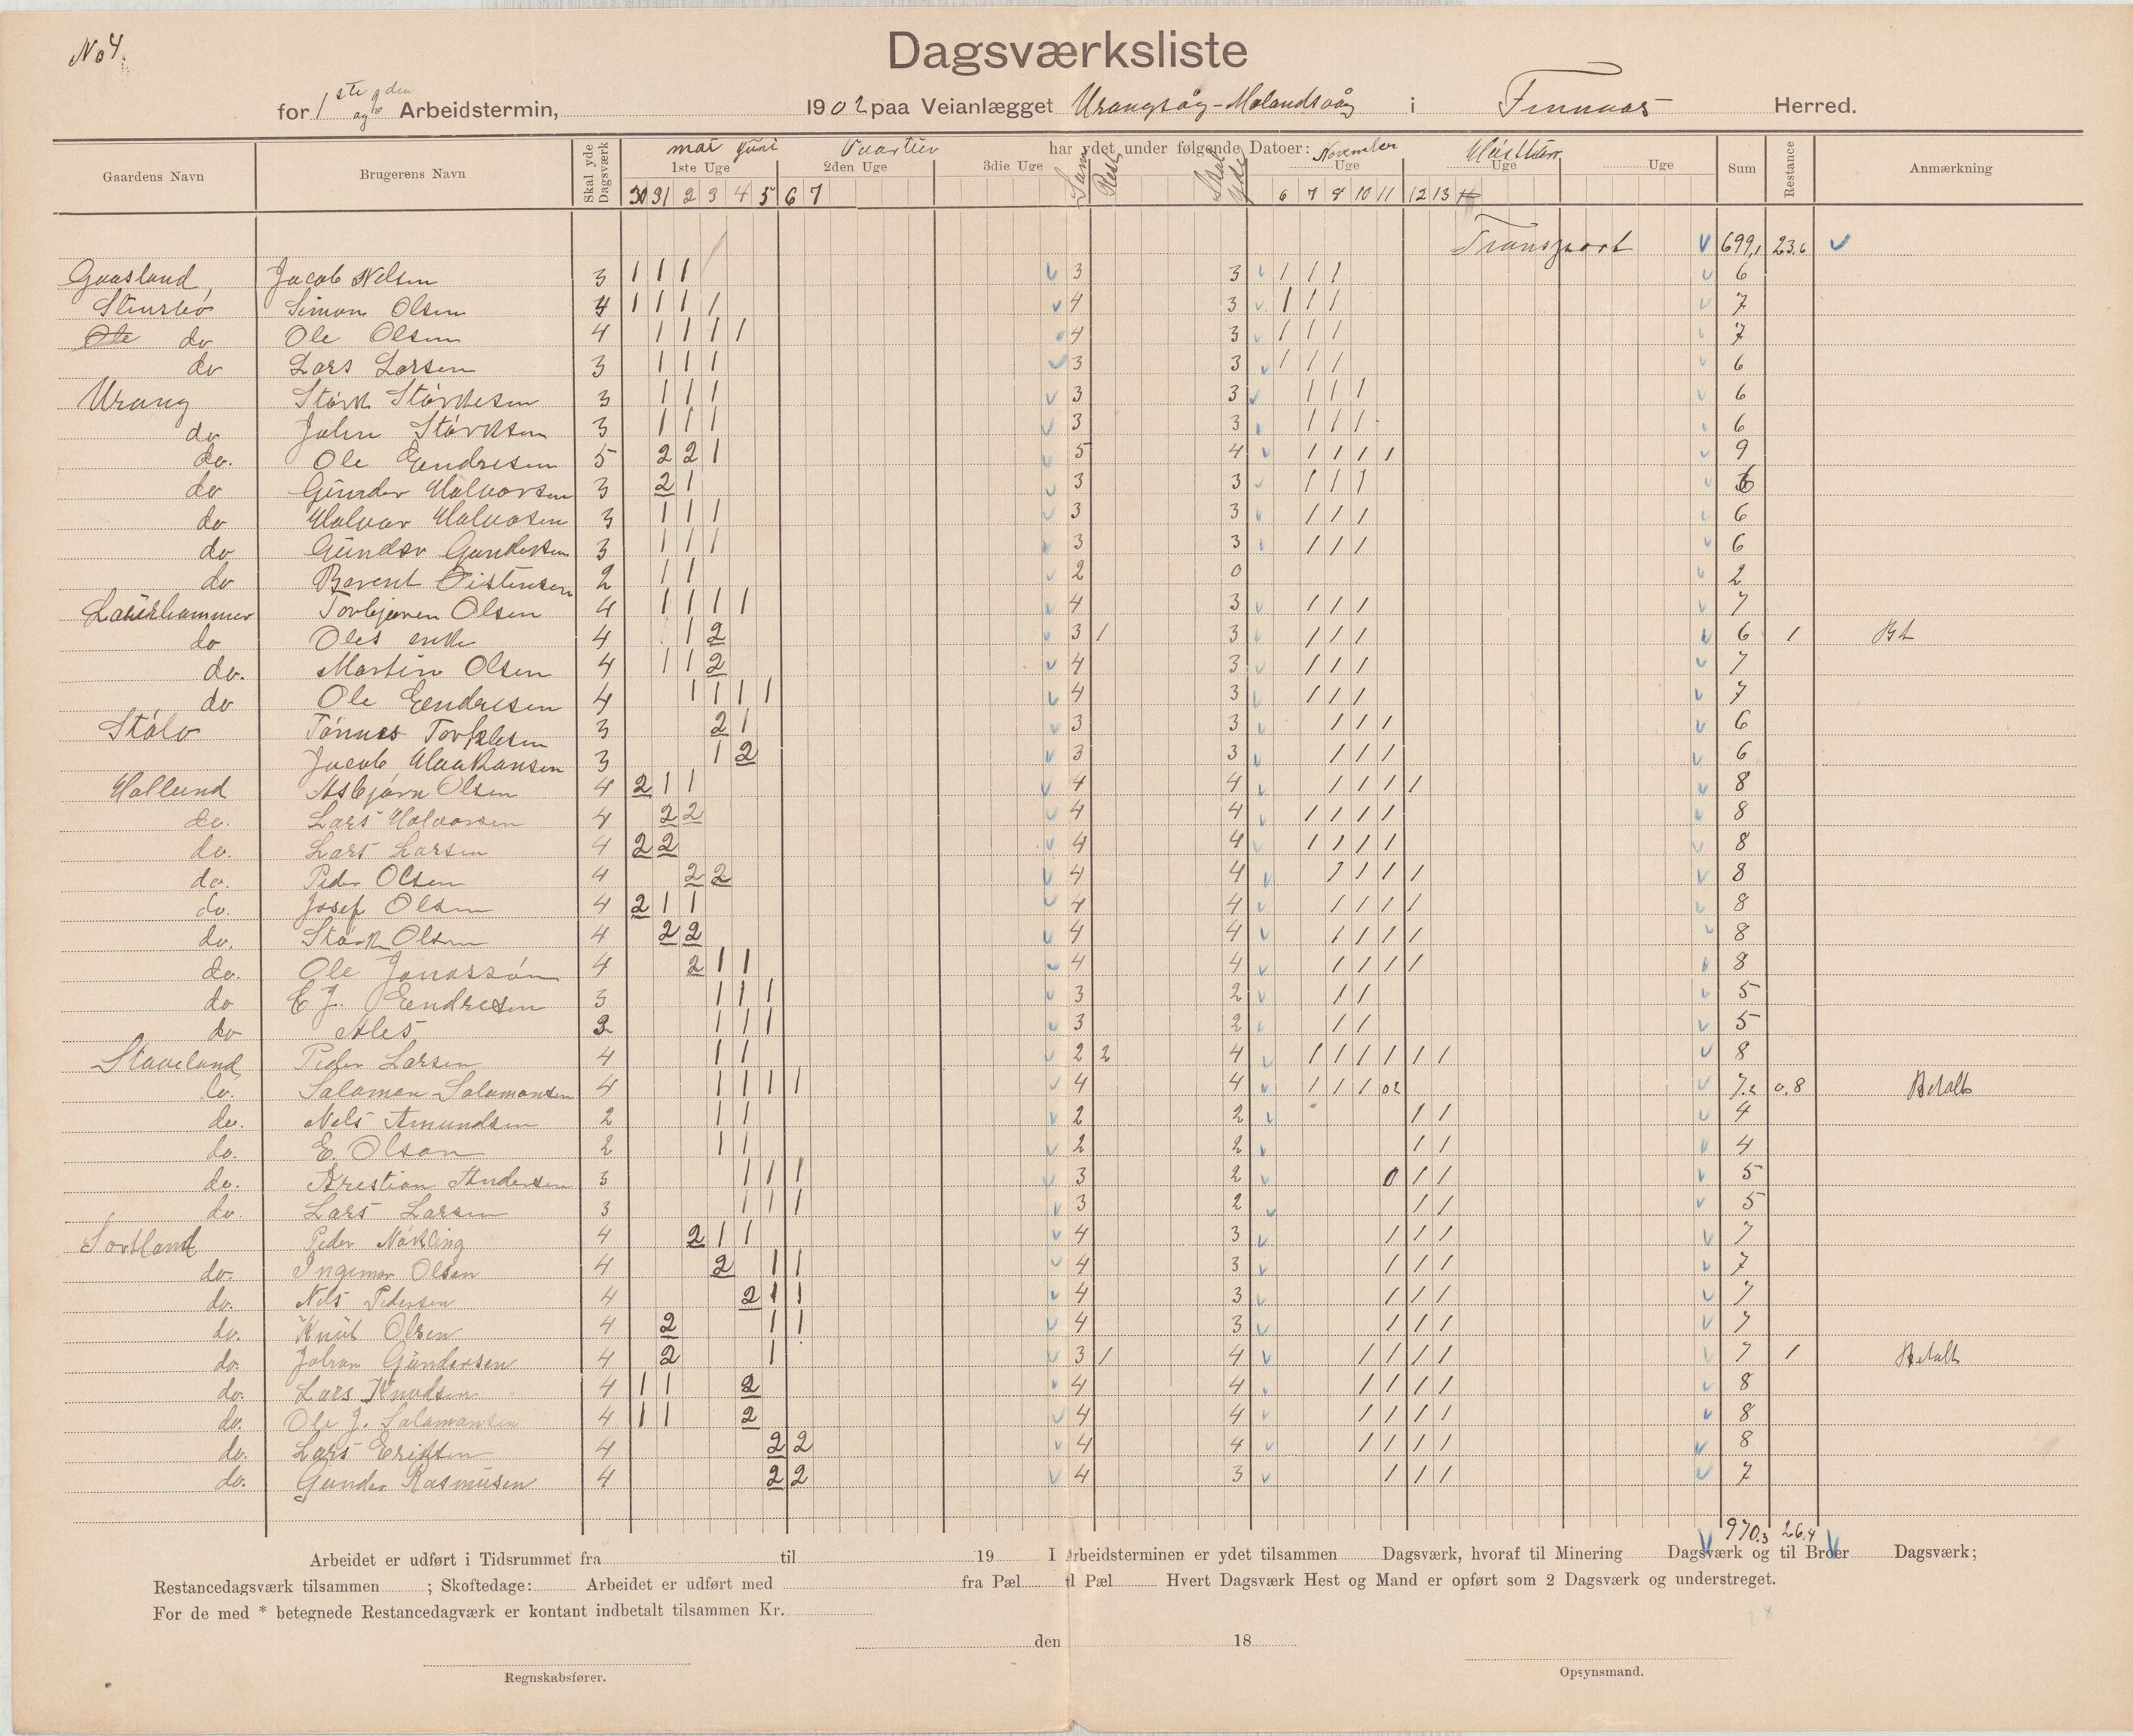 No 4.
Dagsværksliste
for 1 ste og 2 den Arbeidstermin, 1902 paa Veianlægget Urangsåg - Molandsvåg i Finnaas Herred.
Gaardens Navn Brugerens Navn Skal yde Dagsværk har ydet under følgende Datoer: Sum Restance Anmærkning
mai Juni Vaartien November Hösttien
1ste Uge 2den Uge 3die Uge Sum Rest Skal yde Uge Uge Uge
30 31 2 3 4 5 6 7 6 7 8 10 11 12 13
Transport 699,1 23.6
Gaasland Jacob Nelsen 3 1 1 1 3 3 1 1 1 6
Stensbö Simon Olsen 4 1 1 1 1 4 3 1 1 1 7
Ole do Ole Olsen 4 1 1 1 1 4 3 1 1 1 7
do Lars Larsen 3 1 1 1 3 3 1 1 1 6
Urang Störk Störkesen 3 1 1 1 3 3 1 1 1 6
do John Störksen 3 1 1 1 3 3 1 1 1 6
do. Ole Eendresen 5 2 2 1 5 4 1 1 1 1 9
do Gunder Halvorsen 3 2 1 3 3 1 1 1 6
do Halvor Halvosen 3 1 1 1 3 3 1 1 1 6
do Gunder Gundersen 3 1 1 1 3 3 1 1 1 6
do Berent Oistensen 2 1 1 2 0 2
Laurhammer Torbjøren Olsen 4 1 1 1 1 4 3 1 1 1 7
do Oles enke 4 1 2 3 1 3 1 1 1 6 1 Bt
do. Martin Olsen 4 1 1 2 4 3 1 1 1 7
do Ole Eendresen 4 1 1 1 1 4 3 1 1 1 7
Stölo Tönnes Torkelsen 3 2 1 3 3 1 1 1 6
Jacob Haakansen 3 1 2 3 3 1 1 1 6
Hallund Asbjörn Olsen 4 2 1 1 4 4 1 1 1 1 8
do. Lars Halvorsen 4 2 2 4 4 1 1 1 1 8
do. Lars Larsen 4 2 2 4 4 1 1 1 1 8
do. Peder Olsen 4 2 2 4 4 1 1 1 1 8
do. Josef Olsen 4 2 1 1 4 4 1 1 1 1 8
do. Störk Olsen 4 2 2 4 4 1 1 1 1 8
do. Ole Jonassön 4 2 1 1 4 4 1 1 1 1 8
do E J. Eendresen 3 1 1 1 3 2 1 1 5
do Ales 3 1 1 1 3 2 1 1 5
Staveland Peder Larsen 4 1 1 2 2 4 1 1 1 1 1 1 8
do. Salamon Salamonsen 4 1 1 1 1 4 4 1 1 1 02 7.2 0.8 Betalt
do. Nels Amundsen 2 1 1 2 2 1 1 4
do. E. Olson 2 1 1 2 2 1 1 4
do. Krestian Andersen 3 1 1 1 3 2 0 1 1 5
do. Lars Larsen 3 1 1 1 3 2 1 1 5
Sortland Peder Nörking 4 2 1 1 4 3 1 1 1 7
do. Ingemar Olsen 4 2 1 1 4 3 1 1 1 7
do. Nels Pedersen 4 2 1 1 4 3 1 1 1 7
do. Knut Olsen 4 2 1 1 4 3 1 1 1 7
do. Johan Gundersen 4 2 1 3 1 4 1 1 1 1 7 1 Betalt
do. Lars Knudsen 4 1 1 2 4 4 1 1 1 1 8
do. Ole J. Salamonsen 4 1 1 2 4 4 1 1 1 1 8
do. Lars Eriksen 4 2 2 4 4 1 1 1 1 8
do. Gunder Rasmusen 4 2 2 4 3 1 1 1 7
970.3 26.4
Arbeidet er udført i Tidsrummet fra til 19 I Arbeidsterminen er ydet tilsammen Dagsværk, hvoraf til Minering Dagsværk og til Broer Dagsværk;
Restancedagsværk tilsammen ; Skoftedage: Arbeidet er udført med fra Pæl til Pæl Hvert Dagsværk Hest og Mand er opført som 2 Dagsværk og understreget.
For de med * betegnede Restancedagværk er kontant indbetalt tilsammen Kr.
den 18
Regnskabsfører. Opsynsmand.